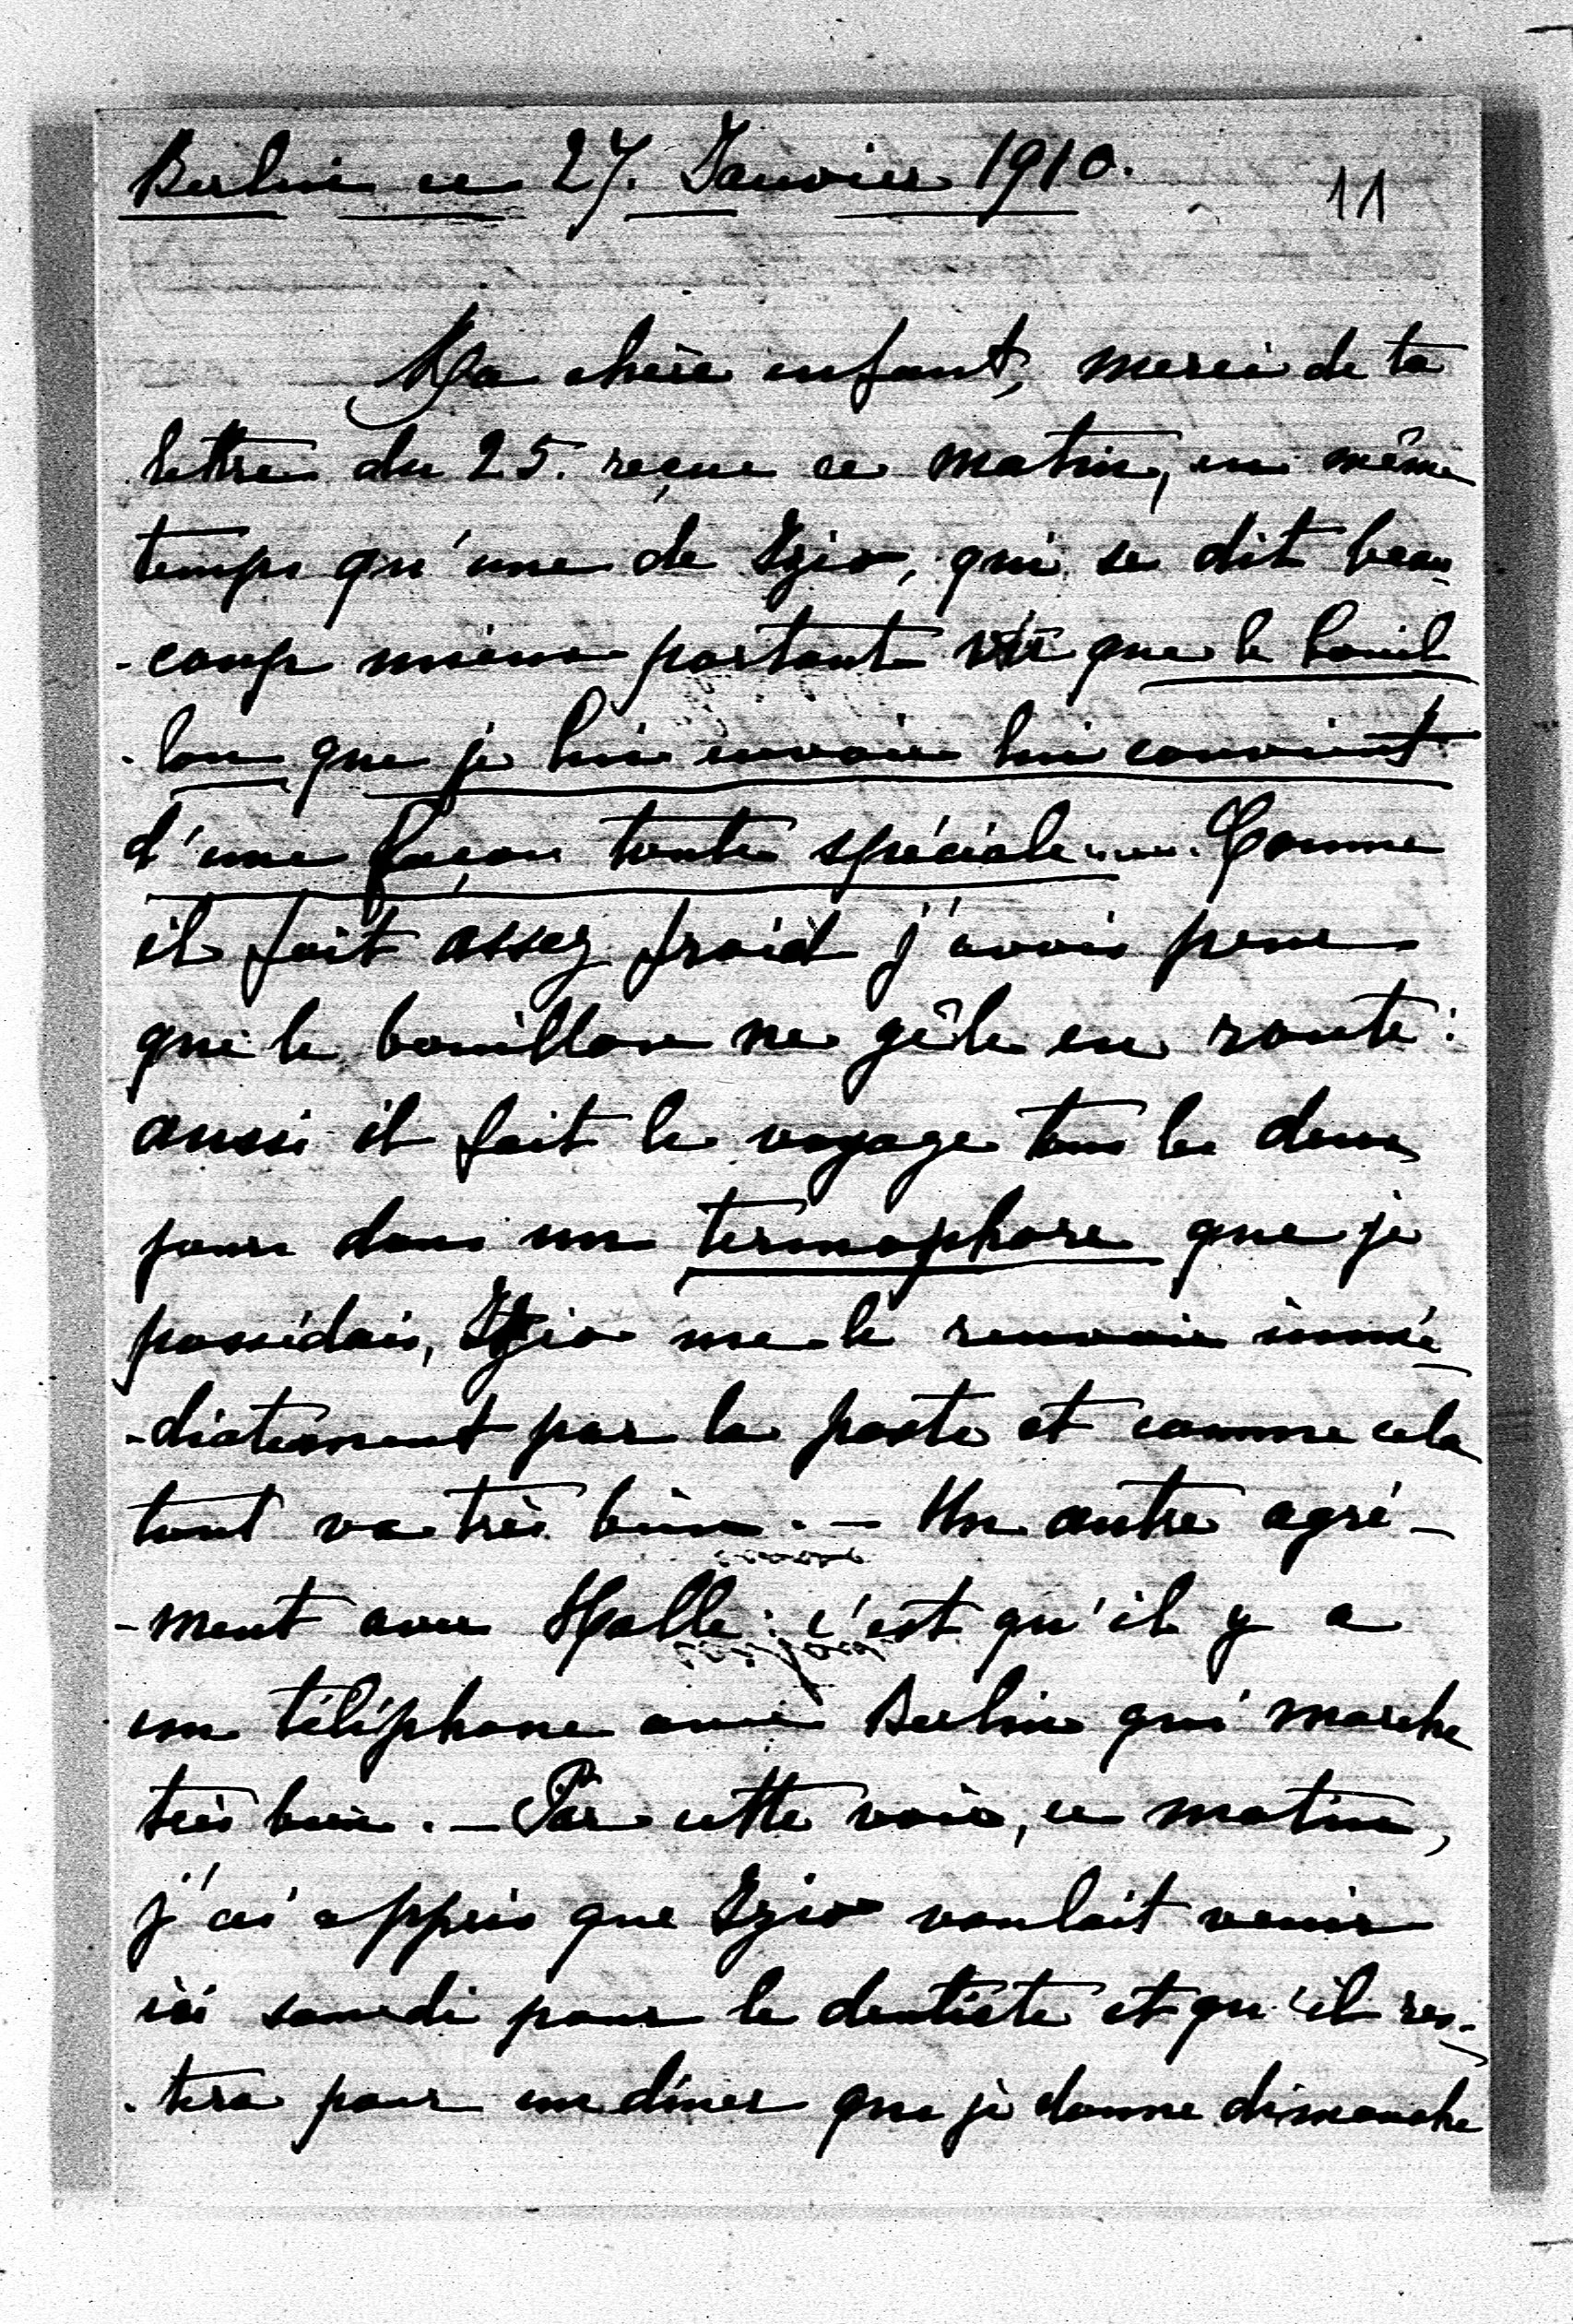 Berlin ce 27. Janvier 1910.
11
Ma chère enfant, merci de ta
lettre du 25. reçue ce matin, en même
temps qu'une de Izio, qui se dit beau
-coup mieux portant que le bouil
-lon que je lui envoie lui convient
d'une façon toute spéciale..... Comme
il fait assez froid j'avais peur
que le bouillon ne gèle en route:
aussi il fait le voyage tous les deux
jours dans un termophore que je
possédais, Izio me le renvoie immé
-diatement par la poste et comme cela
tout va très bien. — Un autre agré-
-ment avec Halle: c'est qu'il y a
un téléphone avec Berlin qui marche
très bien. — Par cette voie, ce matin,
j'ai appris que Izio voulait venir
ici samedi pour le dentiste et qu'il res-
-tera pour un dîner que je donne dimanche